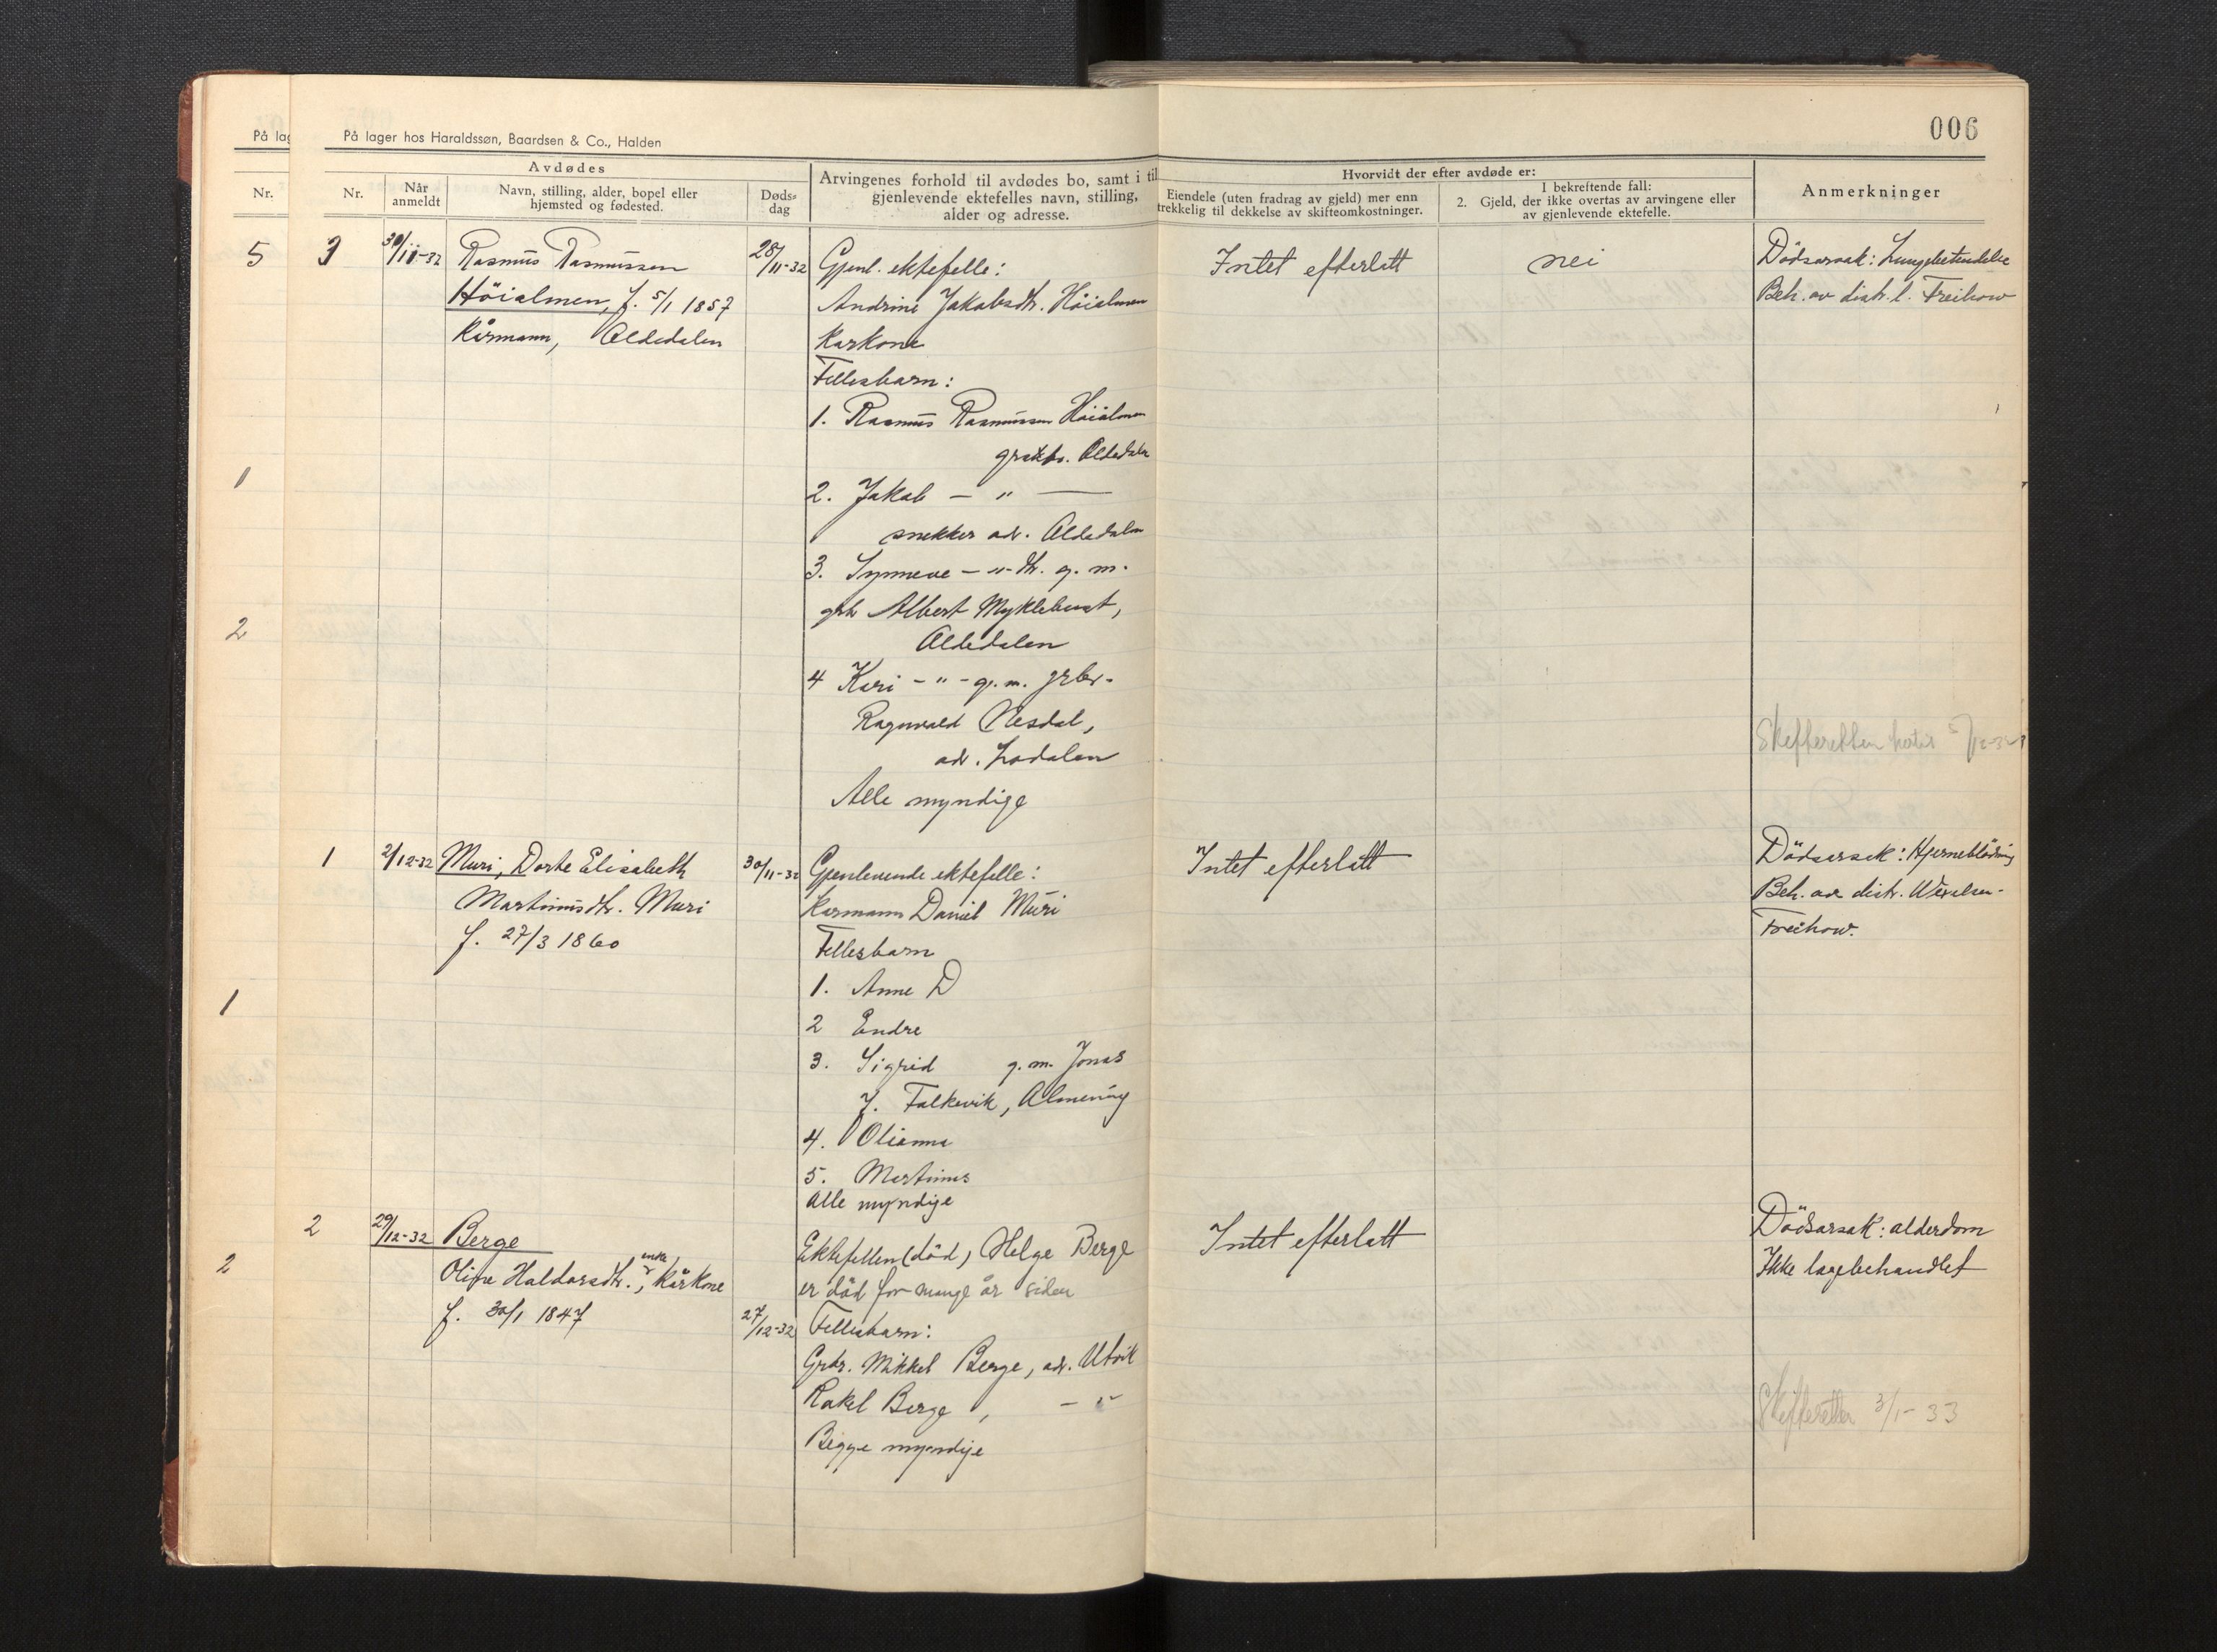 006
På lag
På lager hos Haraldssøn, Baardsen & Co., Halden
Nr.
Nr.
Når anmeldt
Avdødes
Navn, stilling, alder, bopel eller
hjemsted og fødested.
Døds-
dag
Arvingenes forhold til avdødes bo, samt i til
gjenlevende ektefelles navn, stilling,
alder og adresse.
Hvorvidt der efter avdøde er:
Eiendele (uten fradrag av gjeld) mer enn
trekkelig til dekkelse av skifteomkostninger.
I bekreftende fall:
2. Gjeld, der ikke overtas av arvingene eller
av gjenlevende ektefelle.
Anmerkninger
5
1
2
1
2
3
30/11-32
Rasmus Rasmussen
Höialmen, f. 5/1 1857
Kårmann, Oldedalen
28/11-32
Gjenl. ektefelle:
Andrine Jakobsdtr. Höialmen
Karkone
Fellesbarn:
1. Rasmus Rasmussen Höialmen
Oldedalen
2. Jakob — " —
snekker adr. Oldedalen
3. Synneve — "- dtr. g. m.
Albert Myklebust,
Oldedalen
4 Kari - " - g. m. grbr.
Ragnvald Nesdal,
adr. Lodalen
Alle myndige
Intet efterlatt
nei
Dödsarsak: Lungebetendelse
Beh. av distr. l. Freihow
Skifteretten 5/12-32
1
2/12-32
Muri, Dorte Elisabeth
Martinusdtr. Muri
f. 27/3 1860
30/11-32
Gjenlevende ektefelle:
Karmann Daniel Muri
Fellesbarn
1. Anne D
2 Endre
3. Sigrid g. m. Jonas
J. Falkevik, Almening
4. Olianna
5. Martinus
Alle myndige
Intet efterlatt
Dödsarsak: Hjerneblödning
Beh. av distr.
Freihow.
2
29/12-32
Berge
enke
Oline Haldorsdtr., Kårkone
f. 30/1 1847
27/12-32
Ektefellen (död) Helge Berge
er död for mange år siden
Fellesbarn:
Grbr. Mikkel Berge, adr. Utvik
Rakel Berge, - " -
Begge myndige
Intet efterlatt
Dödsarsak: alderdom
Ikke lægebehandlet
Skifteretten 3/1-33